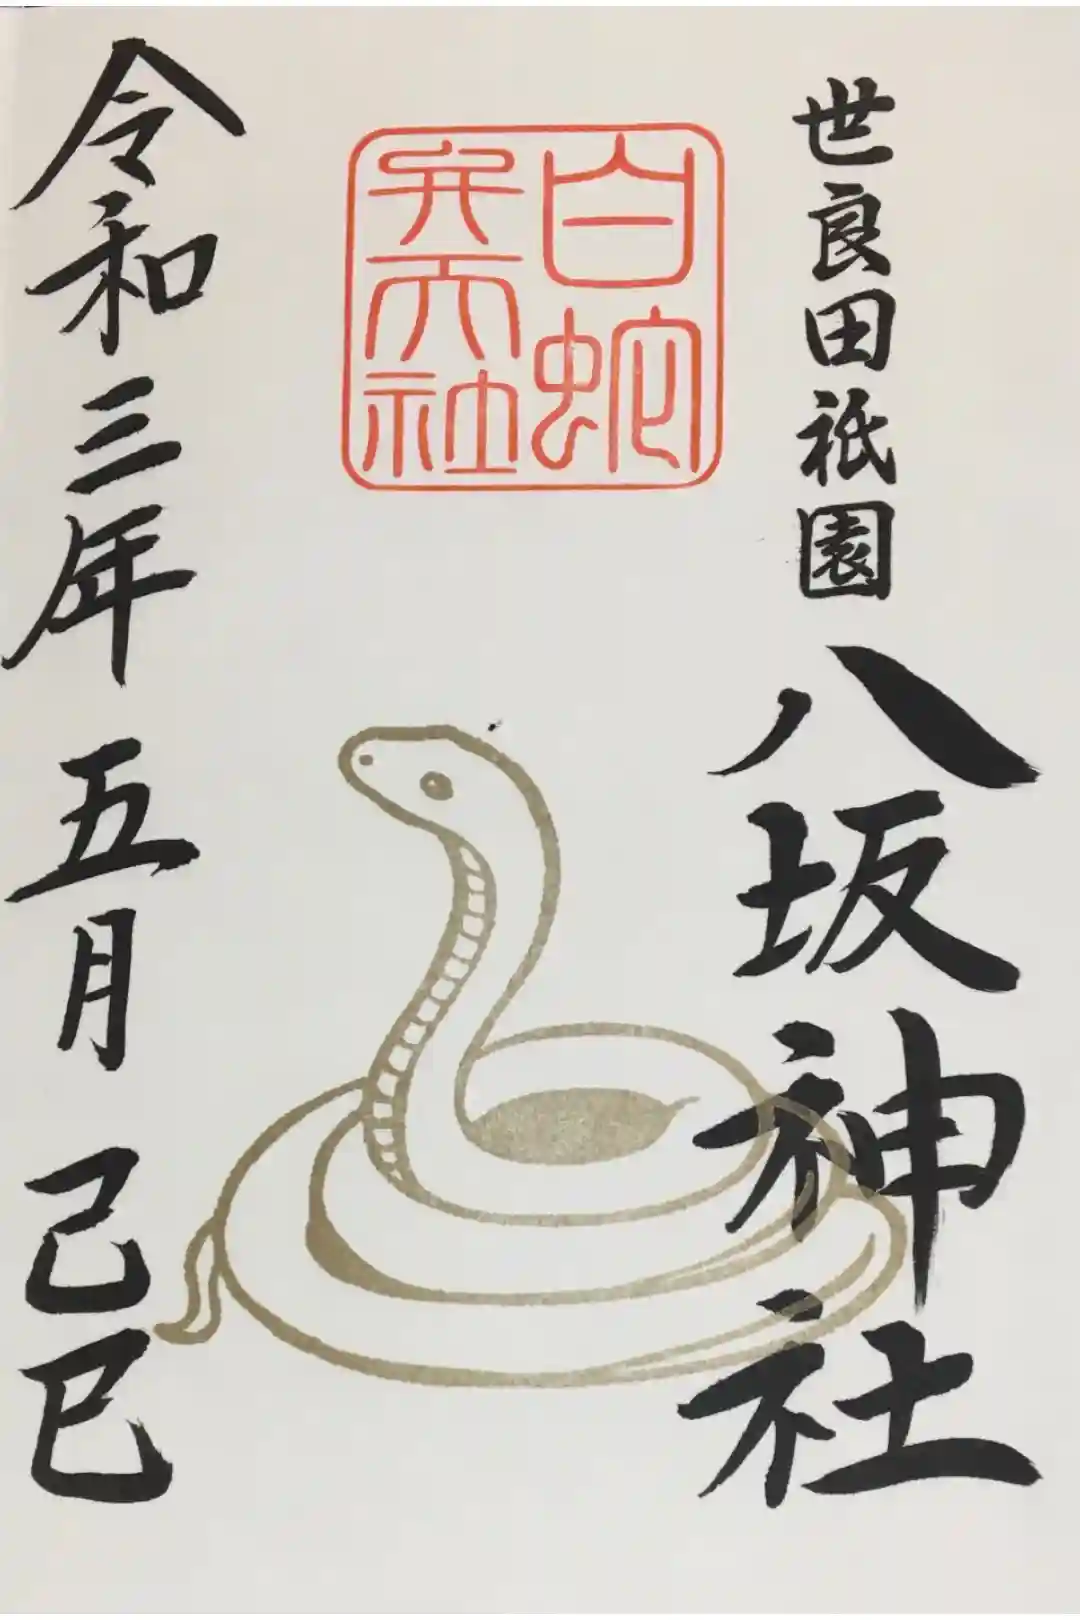 世良田祇園
八坂神社
白蛇
弁天社
令和三年五月己巳